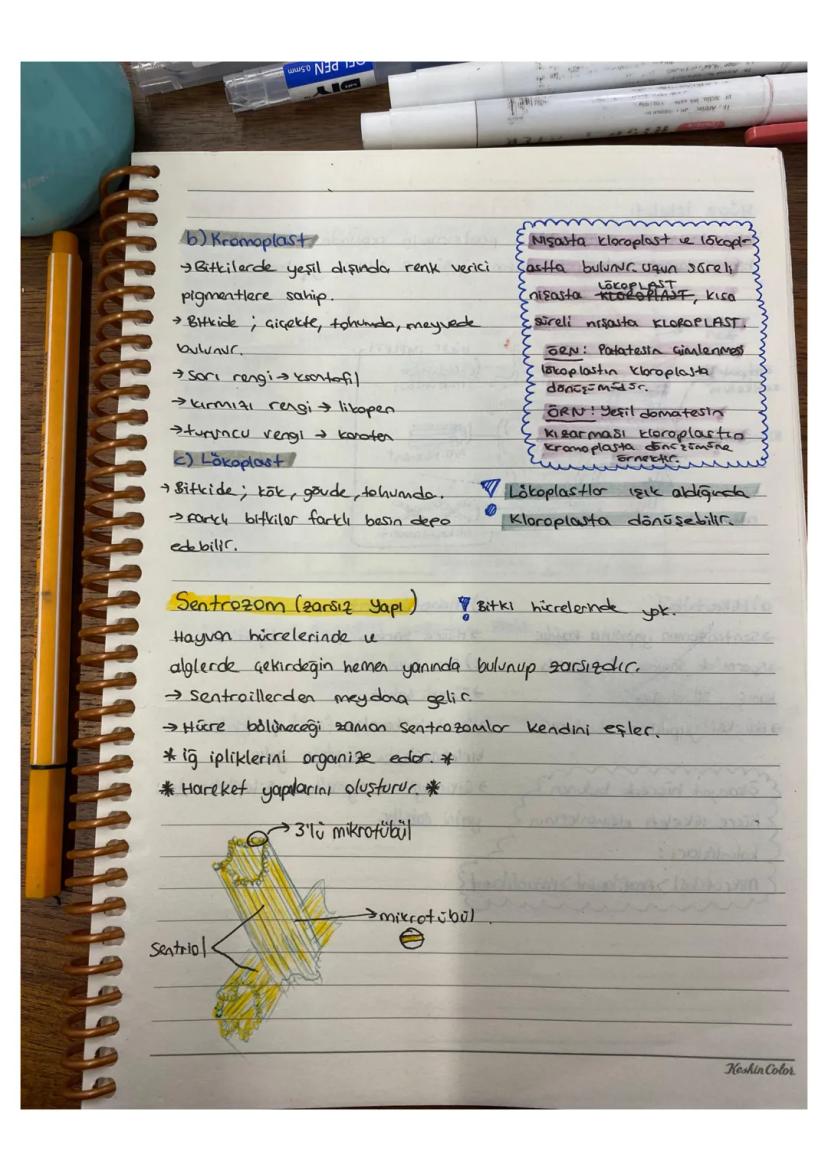 GEL PEN 0.5mm
b) Kromoplast
→ Bitkilerde yeşil dışında renk verici
pigmentlere sahip.
→ Bitkide ; çiçekte, tohumda, meyvede
bulunur.
→ Sarı rengi → ksantofil
→ kırmızı rengi → likopen
→ turuncu rengi → karoten
Nişasta kloroplast ve lökopl-
astta bulunur. Uzun süreli
LÖKOPLAST
nişasta KLOROPLAST, kısa
süreli nişasta KLOROPLAST.
ÖRN: Patatesin çimlenmesi
lökoplastın kloroplasta
dönüşümüdür.
ÖRN: Yeşil domatesin
kızarması kloroplastın
kromoplasta dönüşümüne
örnektir.
c) Lökoplast
→ Bitkide ; kök, gövde, tohumda.
→ farklı bitkiler farklı besin depo
edebilir.
! Lökoplastlar ışık aldığında
Kloroplasta dönüşebilir.
Sentrozom (zarsız yapı)
! Bitki hücrelerinde yok.
Hayvan hücrelerinde ve
alglerde çekirdeğin hemen yanında bulunup zarsızdır.
→ Sentroillerden meydana gelir.
→ Hücre bölüneceği zaman sentrozomlar kendini eşler.
* iğ ipliklerini organize eder. *
* Hareket yapılarını oluşturur. *
→ 3'lü mikrotübül
→ mikrotübül
Sentriol
KeskinColor